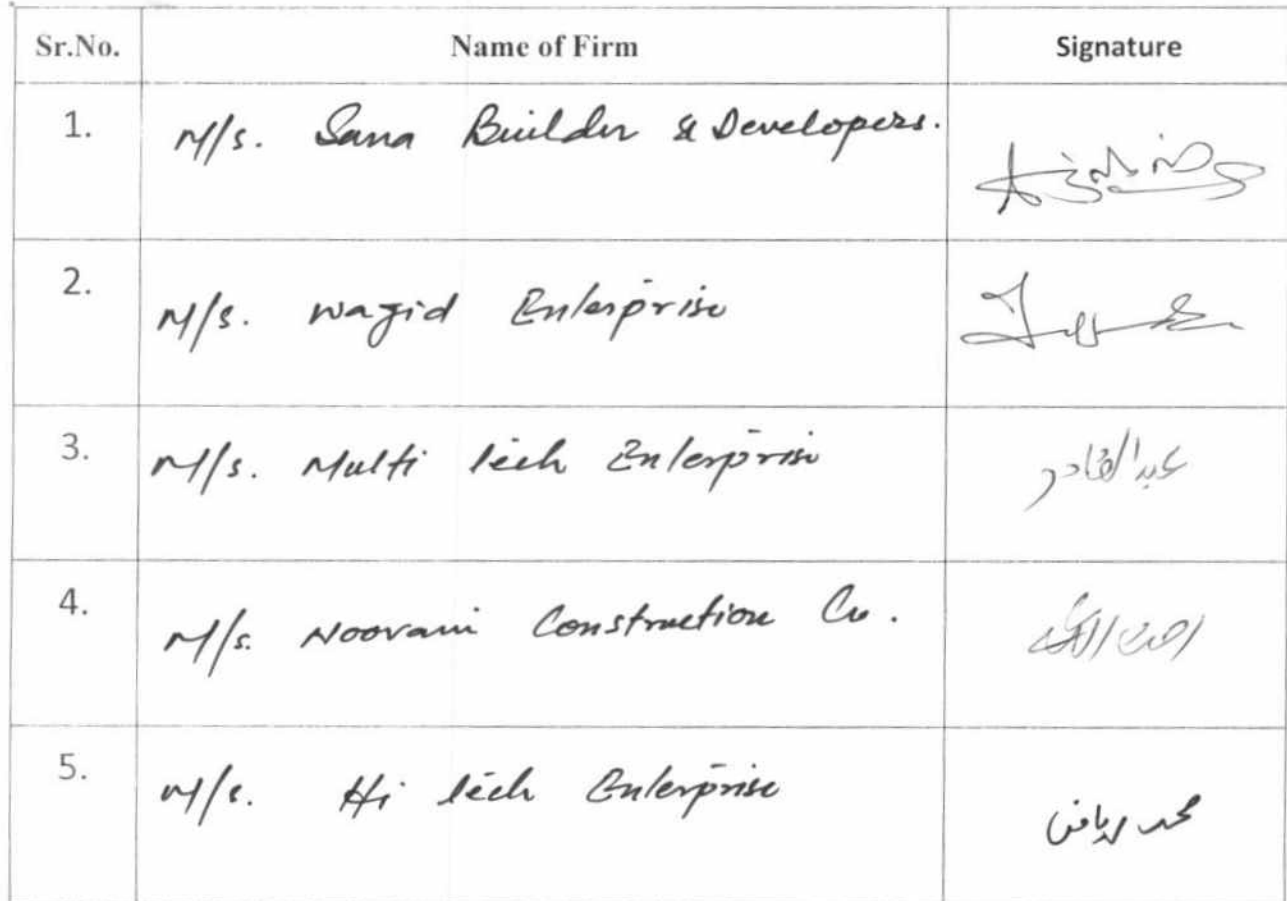 Sr.No. Name of Firm Signature
1. M/s. Sana Builder & Developers.
2. M/s. Wazid Enterprise
3. M/s. Multi tech Enterprise عبدالقادر
4. M/s. Noorani Construction Co.
5. M/s. Hi tech Enterprise محمد ریاض